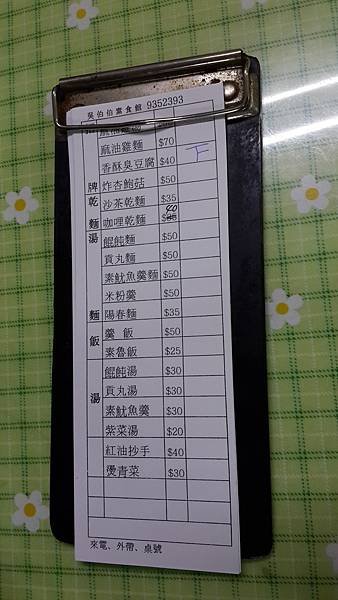 吳伯伯素食館 9352393
麻油雞麵 $70
香酥臭豆腐 $40 下
炸杏鮑菇 $50
沙茶乾麵 $35
咖哩乾麵 40
餛飩麵 $50
貢丸麵 $50
素魷魚羹麵 $50
米粉羹 $50
陽春麵 $35
羹 飯 $50
素魯飯 $25
餛飩湯 $30
貢丸湯 $30
素魷魚羹 $30
紫菜湯 $20
紅油抄手 $40
燙青菜 $30
牌
乾
麵
湯
麵
飯
湯
來電、外帶、桌號